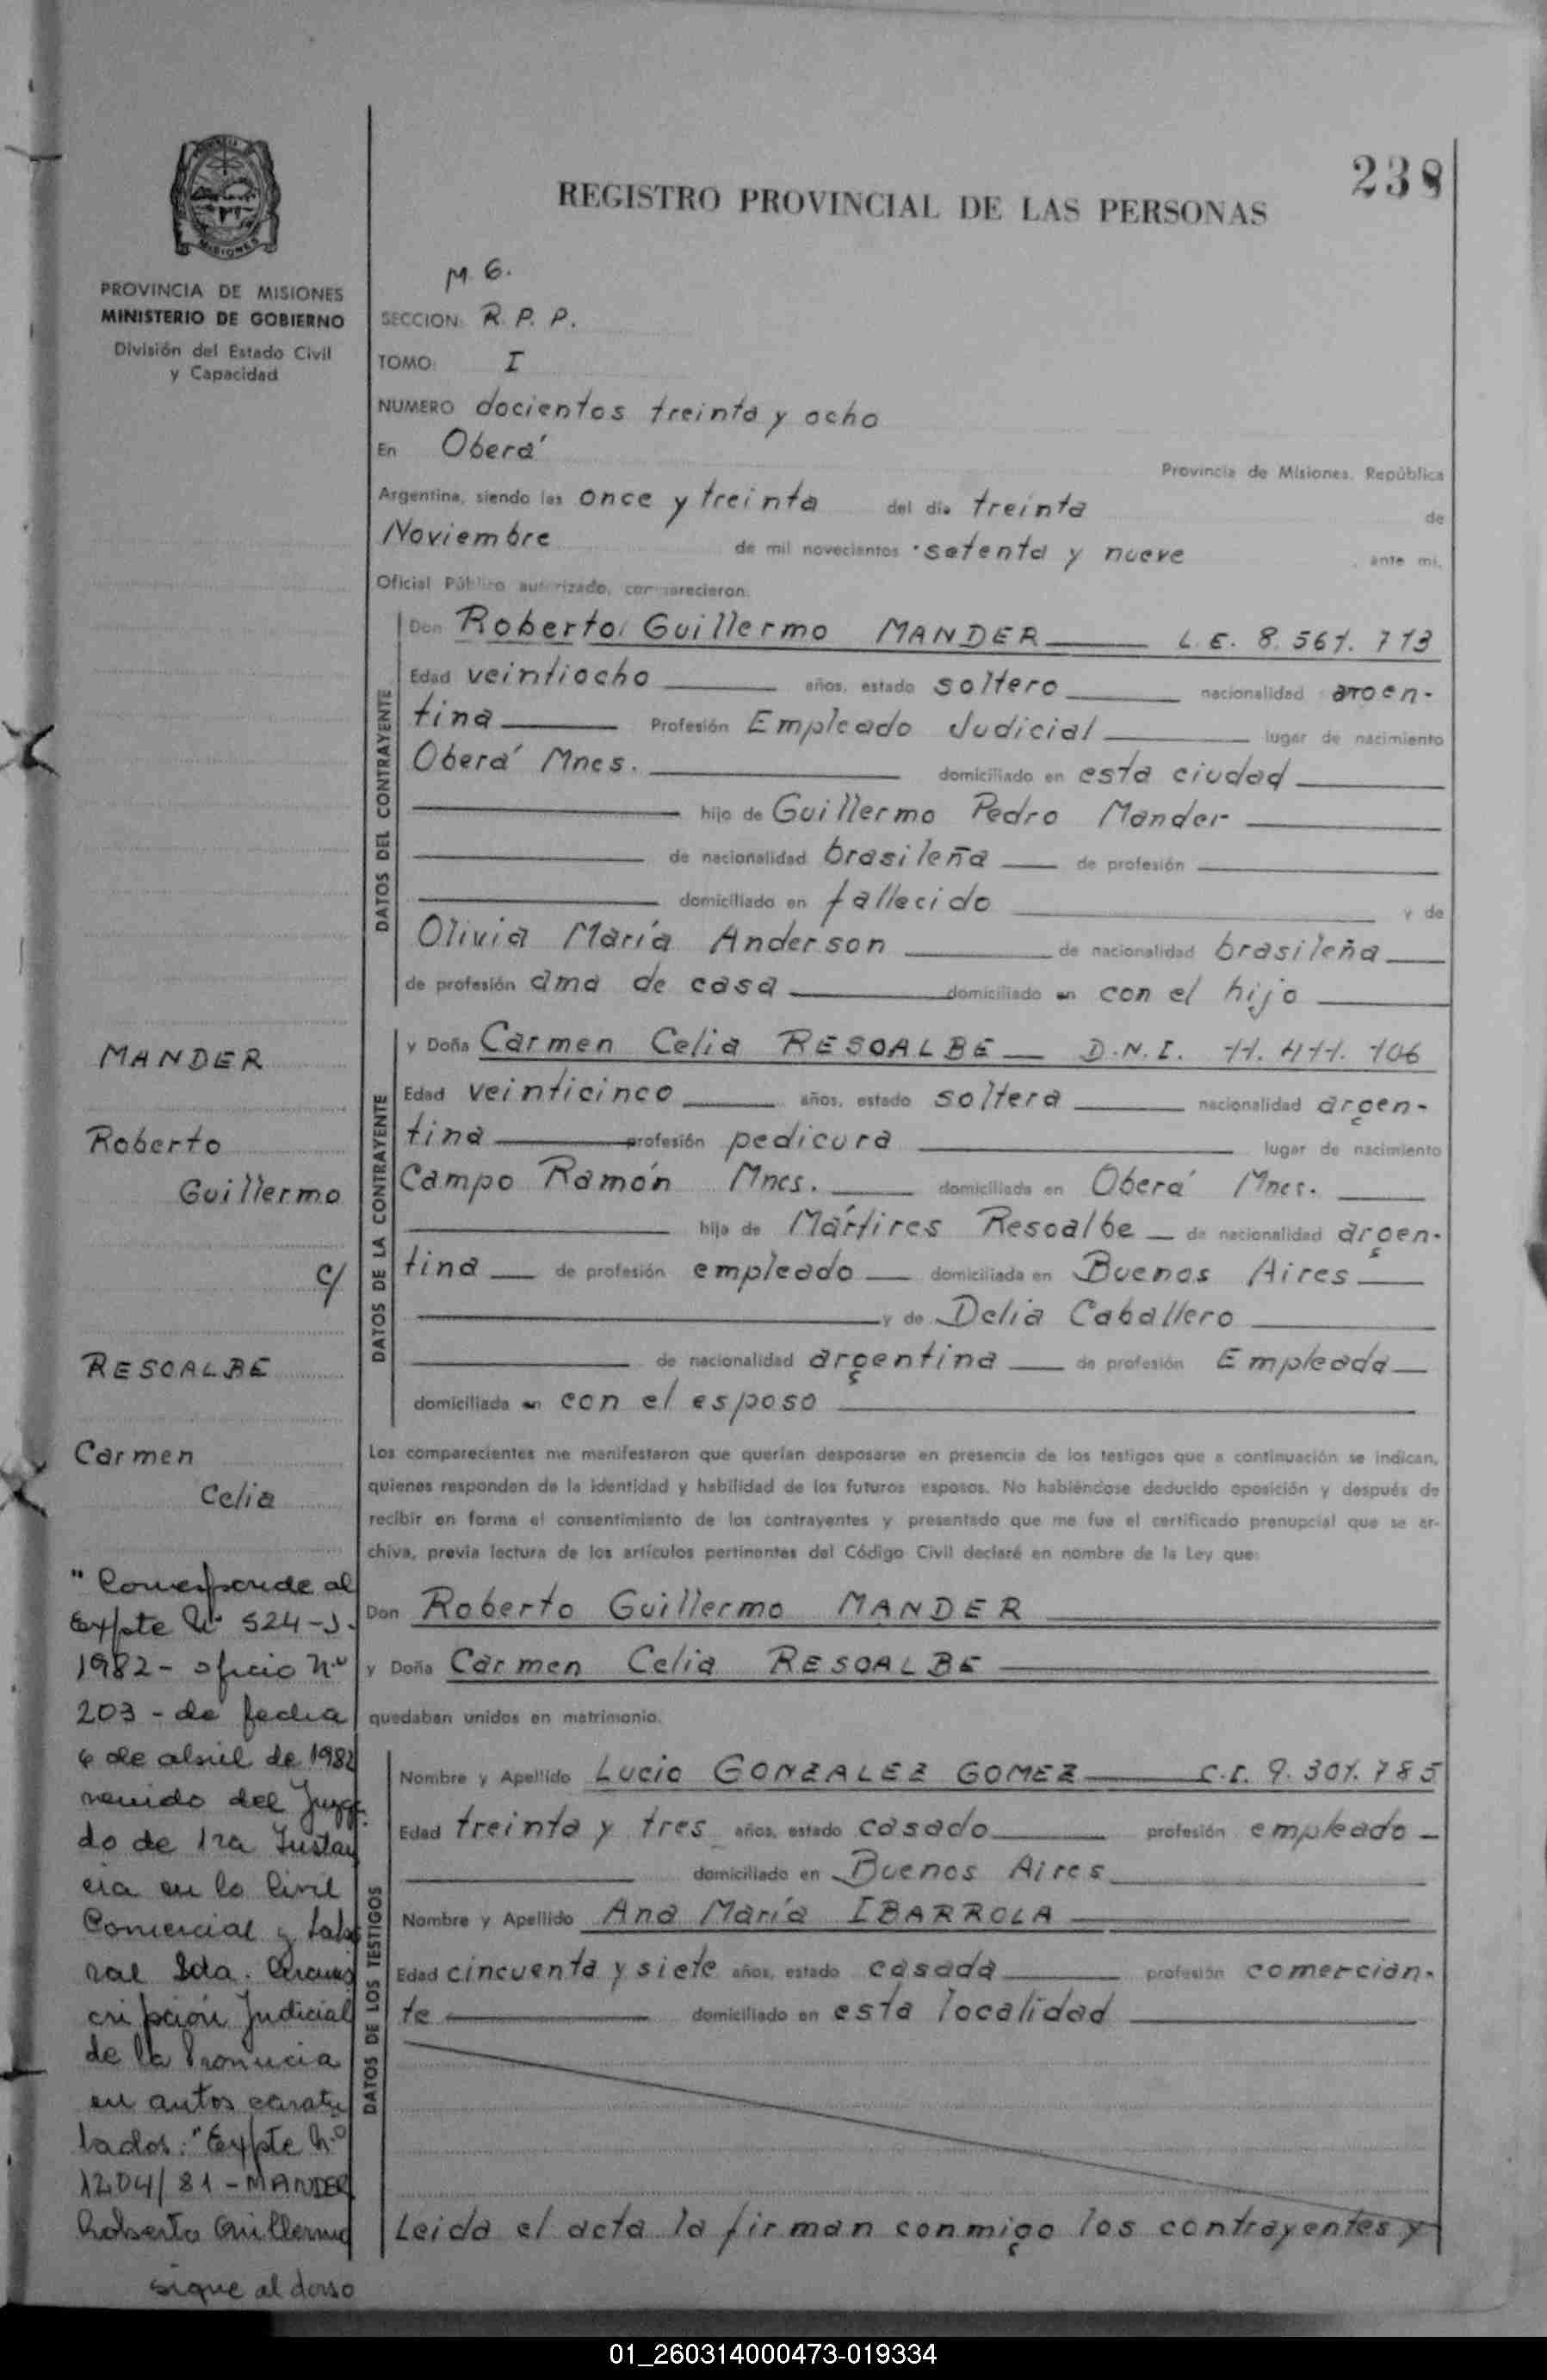 238
REGISTRO PROVINCIAL DE LAS PERSONAS
PROVINCIA DE MISIONES
MINISTERIO DE GOBIERNO
División del Estado Civil
y Capacidad
M. G.
SECCION: R. P. P.
TOMO: I
NUMERO docientos treinta y ocho
En Oberá Provincia de Misiones, República
Argentina, siendo las once y treinta del día treinta de
Noviembre de mil novecientos setenta y nueve, ante mi,
Oficial Público autorizado, comparecieron:
DATOS DEL CONTRAYENTE
Don Roberto Guillermo MANDER L.E. 8.561.713
Edad veintiocho años, estado soltero nacionalidad argen-
tina Profesión Empleado Judicial lugar de nacimiento
Oberá Mnes. domiciliado en esta ciudad
hijo de Guillermo Pedro Mander
de nacionalidad brasileña de profesión
domiciliado en fallecido y de
Olivia María Anderson de nacionalidad brasileña
de profesión ama de casa domiciliado en con el hijo
DATOS DE LA CONTRAYENTE
y Doña Carmen Celia RESOALBE D.N.I. 11.411.106
Edad veinticinco años, estado soltera nacionalidad argen-
tina profesión pedicura lugar de nacimiento
Campo Ramón Mnes. domiciliada en Oberá Mnes.
hija de Mártires Resoalbe de nacionalidad argen-
tina de profesión empleado domiciliada en Buenos Aires
y de Delia Caballero
de nacionalidad argentina de profesión Empleada
domiciliada en con el esposo
Los comparecientes me manifestaron que querían desposarse en presencia de los testigos que a continuación se indican,
quienes responden de la identidad y habilidad de los futuros esposos. No habiéndose deducido oposición y después de
recibir en forma el consentimiento de los contrayentes y presentado que me fue el certificado prenupcial que se ar-
chiva, previa lectura de los artículos pertinentes del Código Civil declaré en nombre de la Ley que:
Don Roberto Guillermo MANDER
y Doña Carmen Celia RESOALBE
quedaban unidos en matrimonio.
DATOS DE LOS TESTIGOS
Nombre y Apellido Lucio GONZALEZ GOMEZ C.I. 9.301.785
Edad treinta y tres años, estado casado profesión empleado
domiciliado en Buenos Aires
Nombre y Apellido Ana María IBARROLA
Edad cincuenta y siete años, estado casada profesión comercian-
te domiciliado en esta localidad
Leida el acta la firman conmigo los contrayentes y
MANDER
Roberto
Guillermo
c/
RESOALBE
Carmen
Celia
"Corresponde al
Expte Nº 524-J-
1982 - oficio nº
203 - de fecha
6 de abril de 1982
venido del Juzga
do de 1ra Instan
cia en lo Civil
Comercial y Labo
ral 2da. Circuns
cripción Judicial
de la Provincia
en autos caratu
lados: "Expte Nº
1204/81 - MANDER
Roberto Guillermo
sigue al dorso
01_260314000473-019334